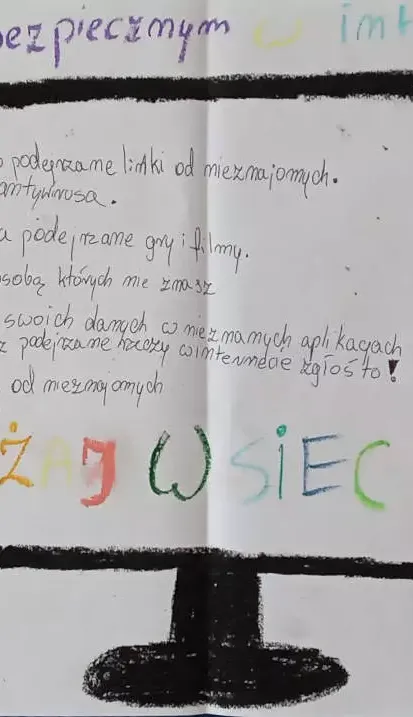 bezpiecznym w int
podejrzane linki od nieznajomych.
antywirusa.
a podejrzane gry i filmy.
sobą których nie znasz
swoich danych w nieznanych aplikacjach
z podejrzane rzeczy w internecie zgłoś to!
od nieznajomych
ŻAJ W SIEC